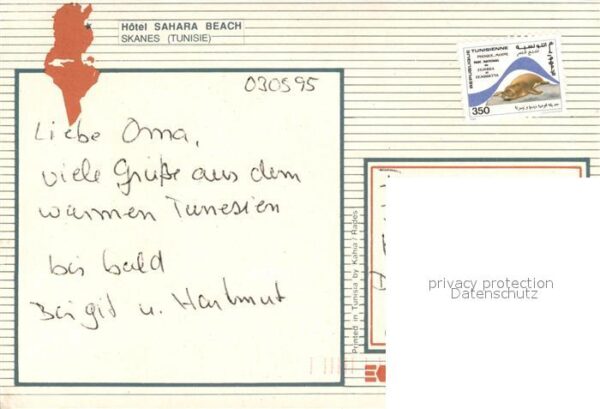 Hôtel SAHARA BEACH
SKANES (TUNISIE)
030595
Liebe Oma,
viele Grüße aus dem
warmen Tunesien
bis bald
Birgit u. Hartmut
REPUBLIQUE TUNISIENNE
350
Printed in Tunisia by Kahia / Rades
privacy protection
Datenschutz